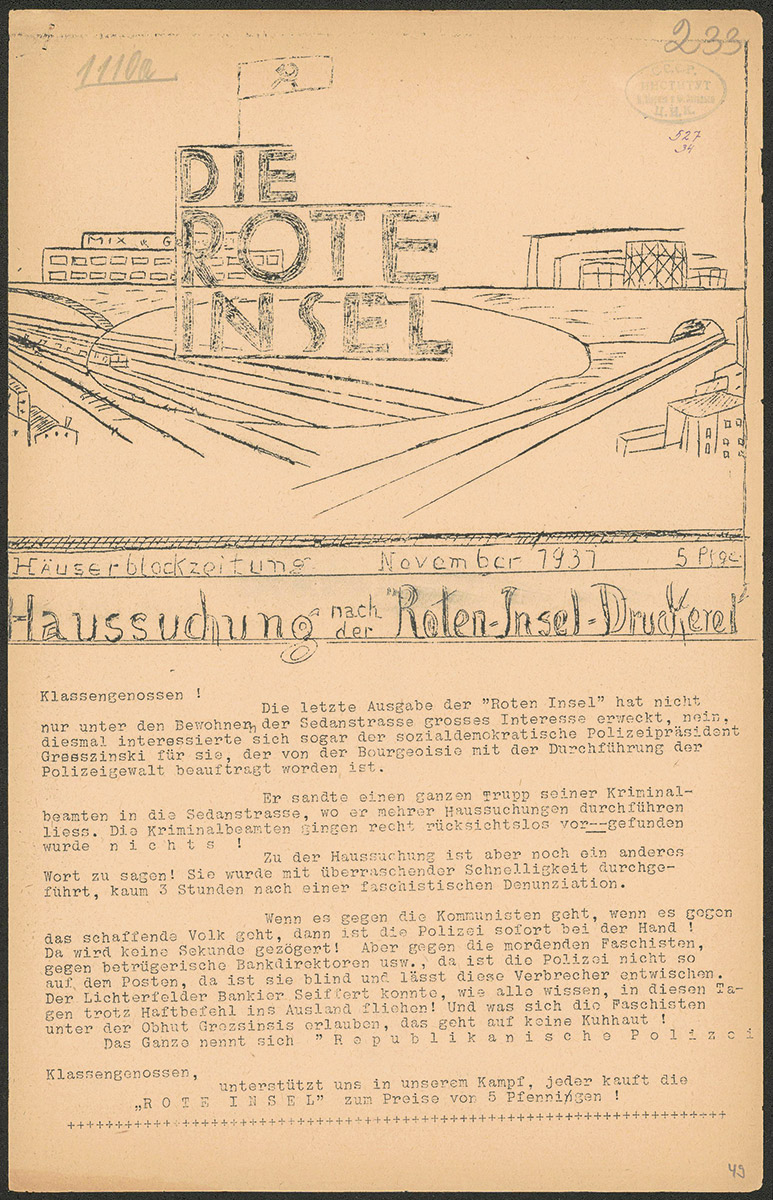 233
1110a
С.С.Р.
ИНСТИТУТ
Ц.И.К.
527
34
DIE
ROTE
INSEL
MIX & G
Häuserblockzeitung November 1931 5 Pfge
Haussuchung nach der "Roten-Insel-Druckerei
Klassengenossen !
Die letzte Ausgabe der "Roten Insel" hat nicht
nur unter den Bewohnern der Sedanstrasse grosses Interesse erweckt, nein,
diesmal interessierte sich sogar der sozialdemokratische Polizeipräsident
Gresszinski für sie, der von der Bourgeoisie mit der Durchführung der
Polizeigewalt beauftragt worden ist.
Er sandte einen ganzen Trupp seiner Kriminal-
beamten in die Sedanstrasse, wo er mehrer Haussuchungen durchführen
liess. Die Kriminalbeamten gingen recht rücksichtslos vor--gefunden
wurde n i c h t s !
Zu der Haussuchung ist aber noch ein anderes
Wort zu sagen! Sie wurde mit überraschender Schnelligkeit durchge-
führt, kaum 3 Stunden nach einer faschistischen Denunziation.
Wenn es gegen die Kommunisten geht, wenn es gegen
das schaffende Volk geht, dann ist die Polizei sofort bei der Hand !
Da wird keine Sekunde gezögert! Aber gegen die mordenden Faschisten,
gegen betrügerische Bankdirektoren usw., da ist die Polizei nicht so
auf dem Posten, da ist sie blind und lässt diese Verbrecher entwischen.
Der Lichterfelder Bankier Seiffert konnte, wie alle wissen, in diesen Ta-
gen trotz Haftbefehl ins Ausland fliehen! Und was sich die Faschisten
unter der Obhut Grezsinsis erlauben, das geht auf keine Kuhhaut !
Das Ganze nennt sich "R e p u b l i k a n i s c h e P o l i z e i
Klassengenossen,
unterstützt uns in unserem Kampf, jeder kauft die
„R O T E I N S E L" zum Preise von 5 Pfennigen !
++++++++++++++++++++++++++++++++++++++++++++++++++++++++++++++++++++++
49